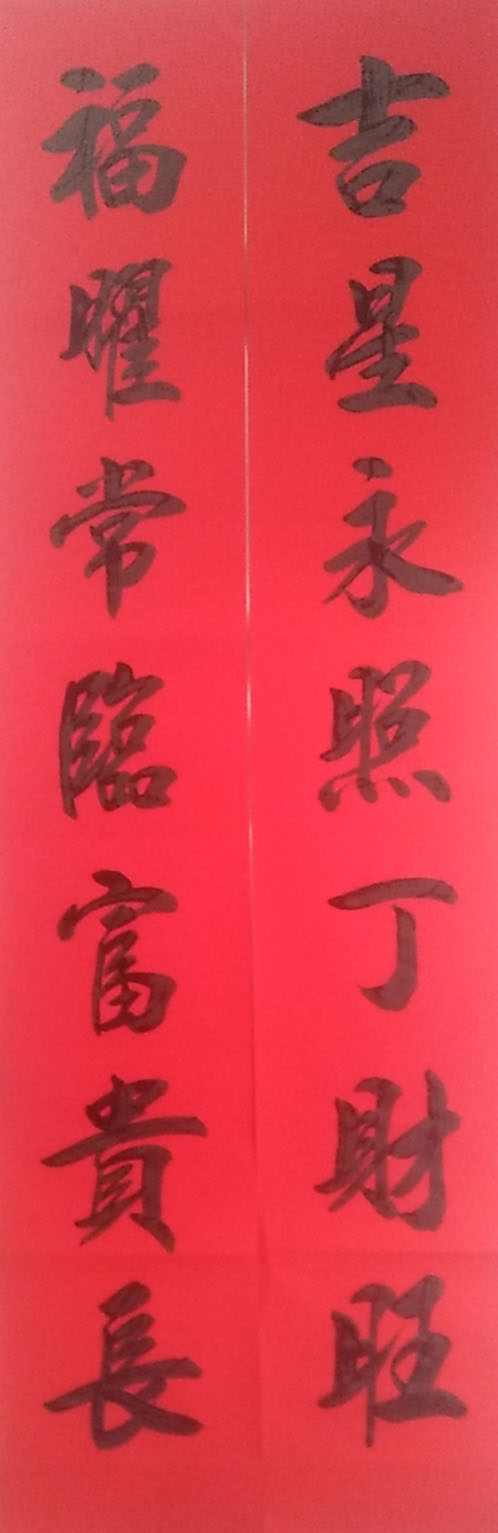 吉星永照丁財旺
福曜常臨富貴長